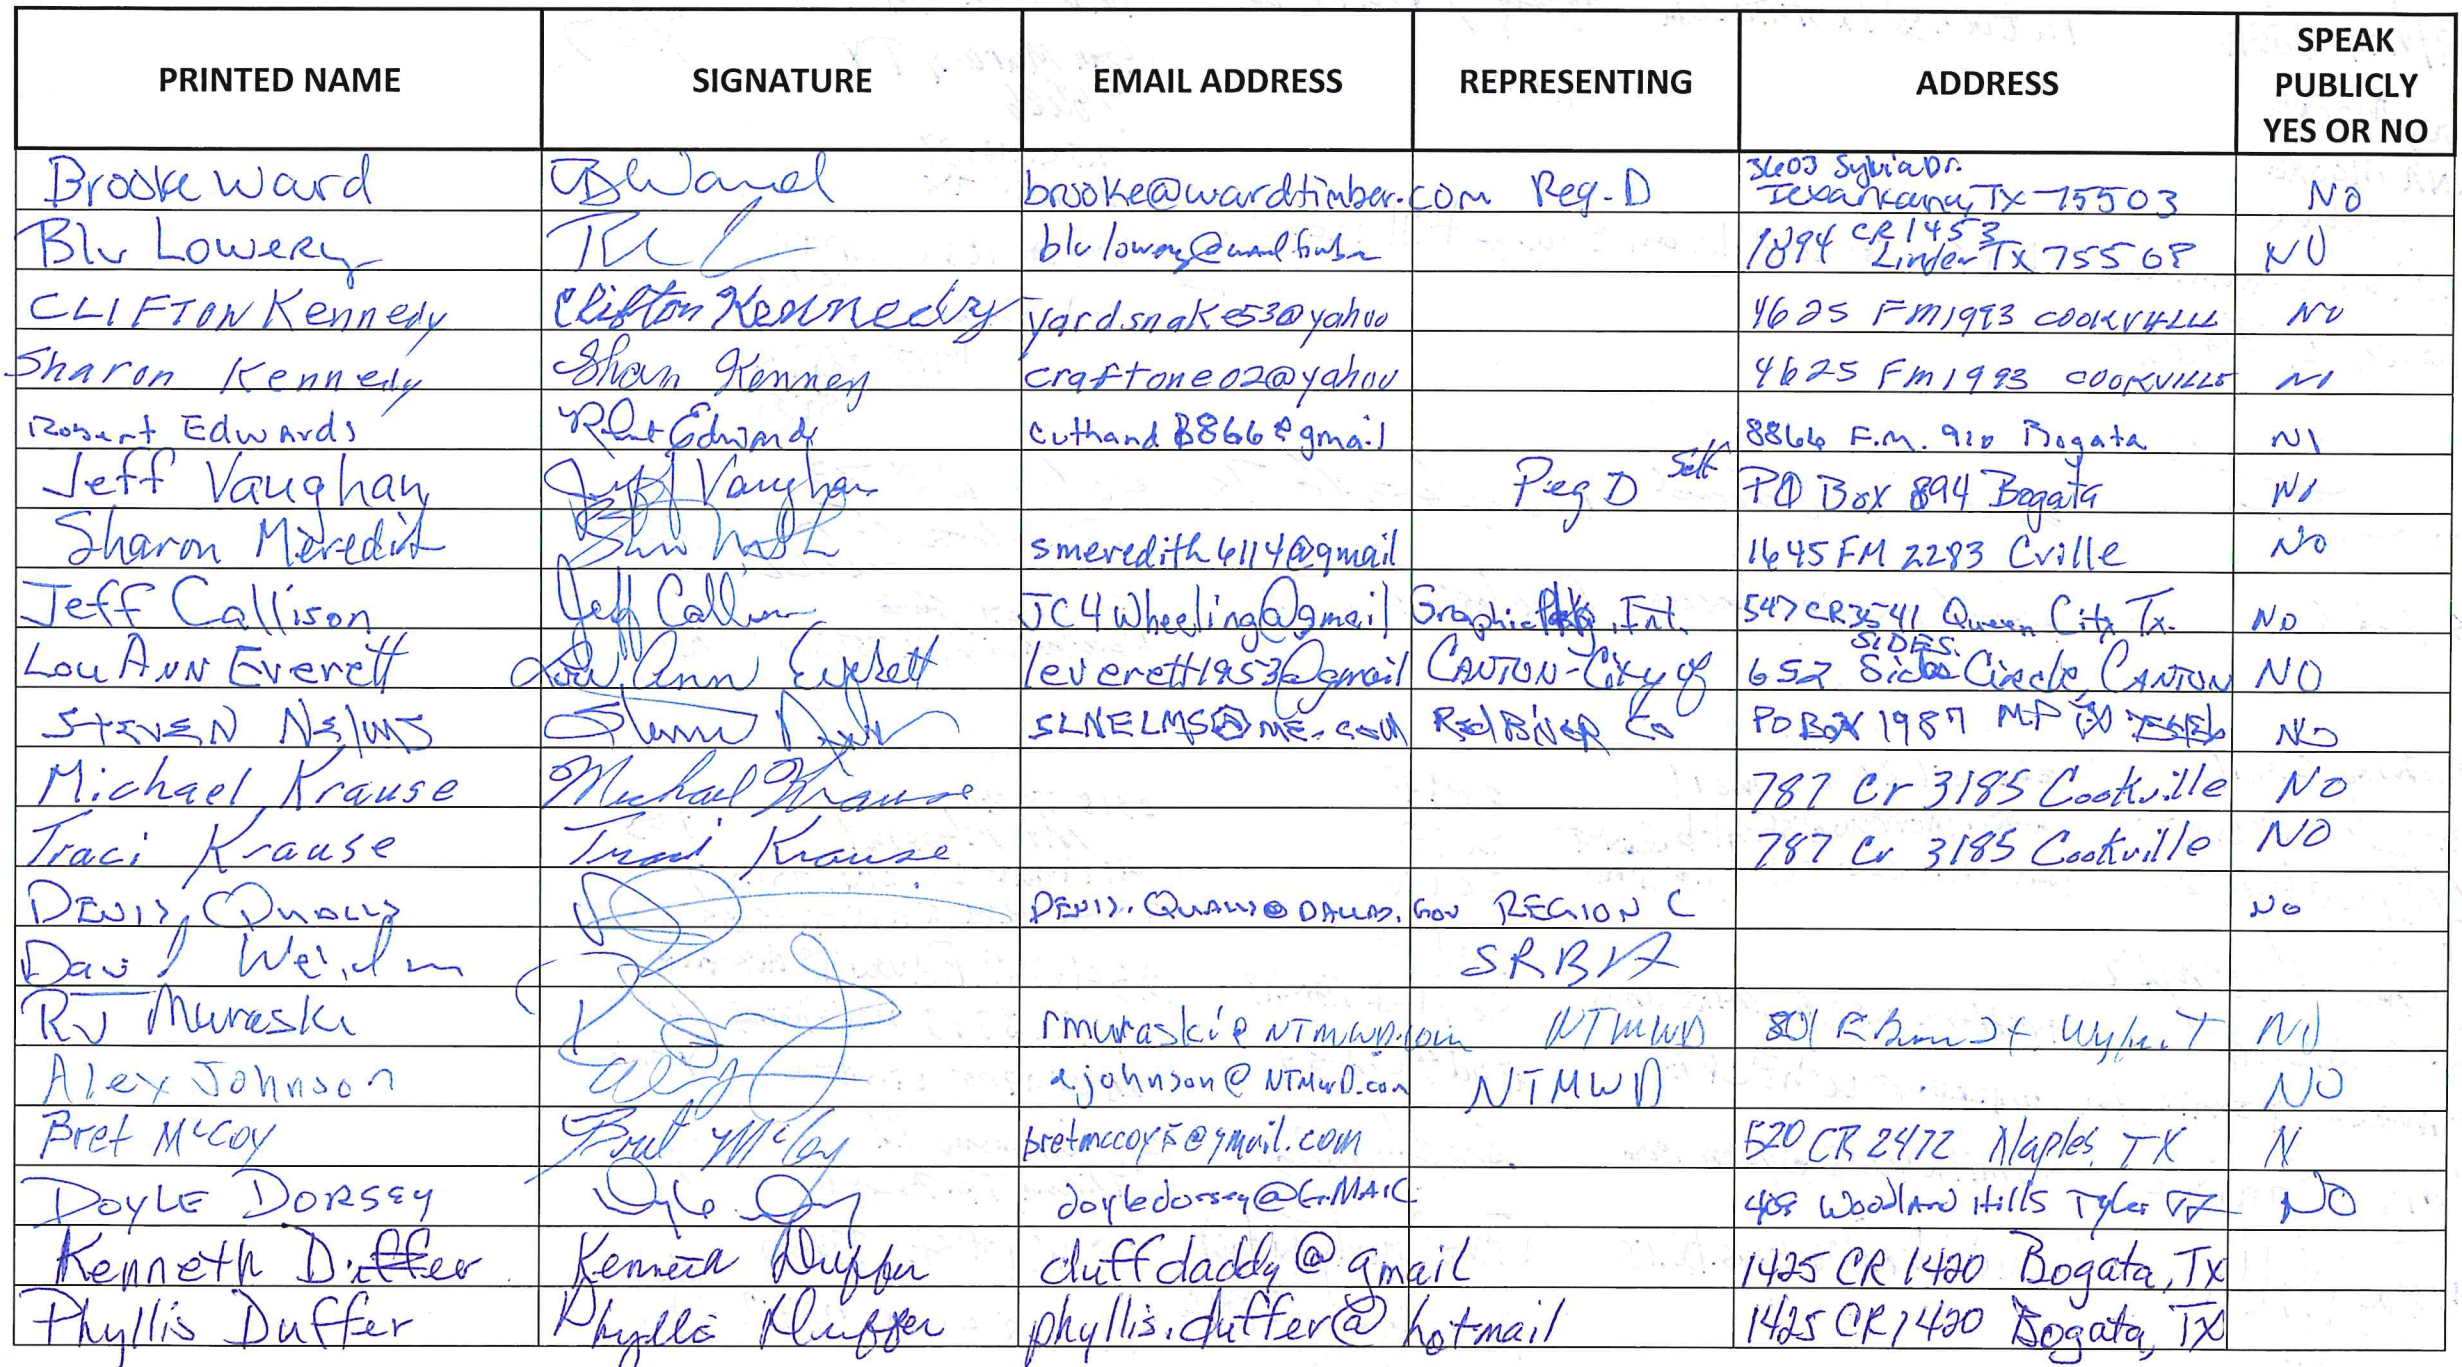 PRINTED NAME SIGNATURE EMAIL ADDRESS REPRESENTING ADDRESS SPEAK PUBLICLY YES OR NO
Brooke Ward BWard brooke@wardtimber.com Reg. D 3603 Sylvia Dr. Texarkana, TX 75503 No
Blu Lowery 1894 CR 1453 Linden Tx 75568 NO
CLIFTON Kennedy Clifton Kennedy yardsnake53@yahoo 4625 FM1993 COOKVILLE No
Sharon Kennedy craftone02@yahoo 4625 Fm1993 COOKVILLE No
Robert Edwards Robert Edwards cuthand8866@gmail 8866 F.M. 910 Bogata No
Jeff Vaughan Jeff Vaughan Reg D Self PO Box 894 Bogata No
Sharon Meredith smeredith6114@gmail 1645 FM 2283 Cville No
Jeff Callison Jeff Callison JC4Wheeling@gmail Graphic Pkg. Int. 547 CR3541 Queen City Tx. No
Lou Ann Everett Lou Ann Everett leverett1953@gmail CANTON-City of 652 SIDES Circle, CANTON NO
STEVEN Nelms SLNELMS@ME.com Red River Co PO BOX 1987 MP TX No
Michael Krause Michael Krause 787 Cr 3185 Cookville No
Traci Krause Traci Krause 787 Cr 3185 Cookville NO
DENIS QUALLS DENIS.QUALLS@DALLAS.GOV REGION C No
David SRBA
RJ Muraski rmuraski@NTMWD.com NTMWD 801 No
Alex Johnson ajohnson@NTMWD.com NTMWD NO
Bret McCoy Bret McCoy bretmccoy5@gmail.com 520 CR 2472 Naples, TX N
DOYLE DORSEY doyledorsey@GMAIL 409 Woodland Hills Tyler TX NO
Kenneth Duffer Kenneth Duffer duffdaddy@gmail 1425 CR 1420 Bogata, Tx
Phyllis Duffer Phyllis Duffer phyllis.duffer@hotmail 1425 CR 1420 Bogata, TX